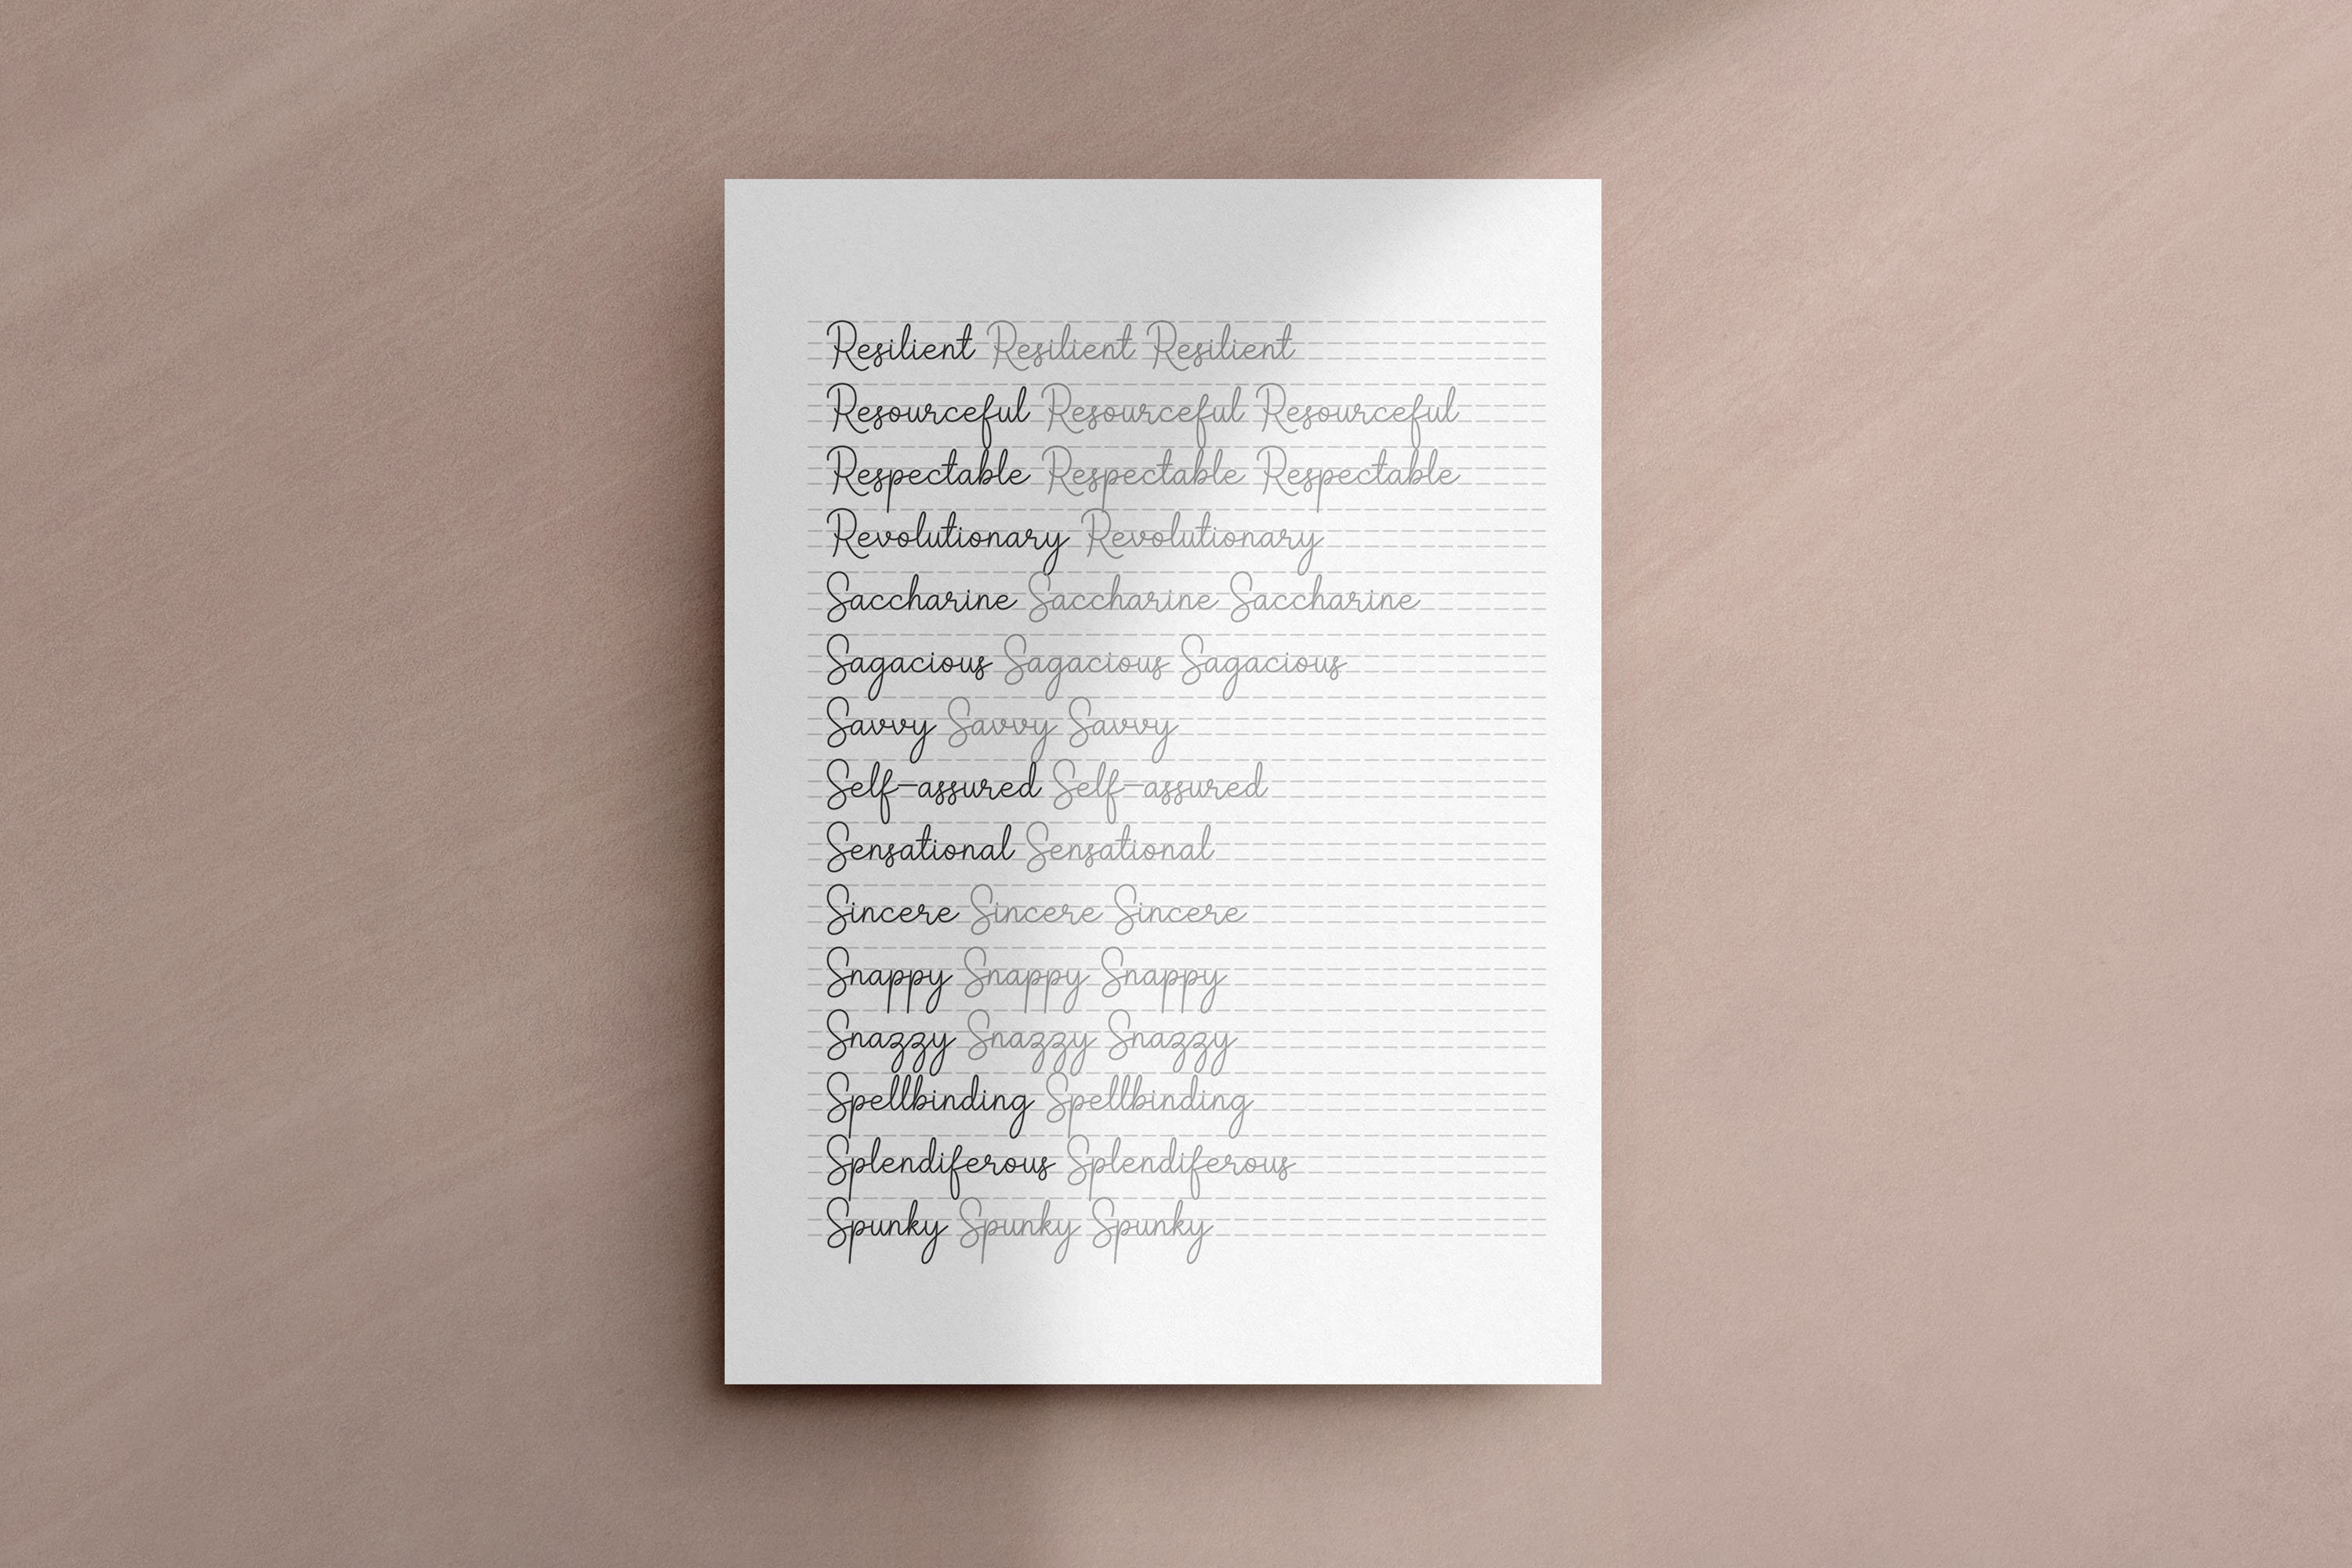 Resilient Resilient Resilient
Resourceful Resourceful Resourceful
Respectable Respectable Respectable
Revolutionary Revolutionary
Saccharine Saccharine Saccharine
Sagacious Sagacious Sagacious
Savvy Savvy Savvy
Self-assured Self-assured
Sensational Sensational
Sincere Sincere Sincere
Snappy Snappy Snappy
Snazzy Snazzy Snazzy
Spellbinding Spellbinding
Splendiferous Splendiferous
Spunky Spunky Spunky